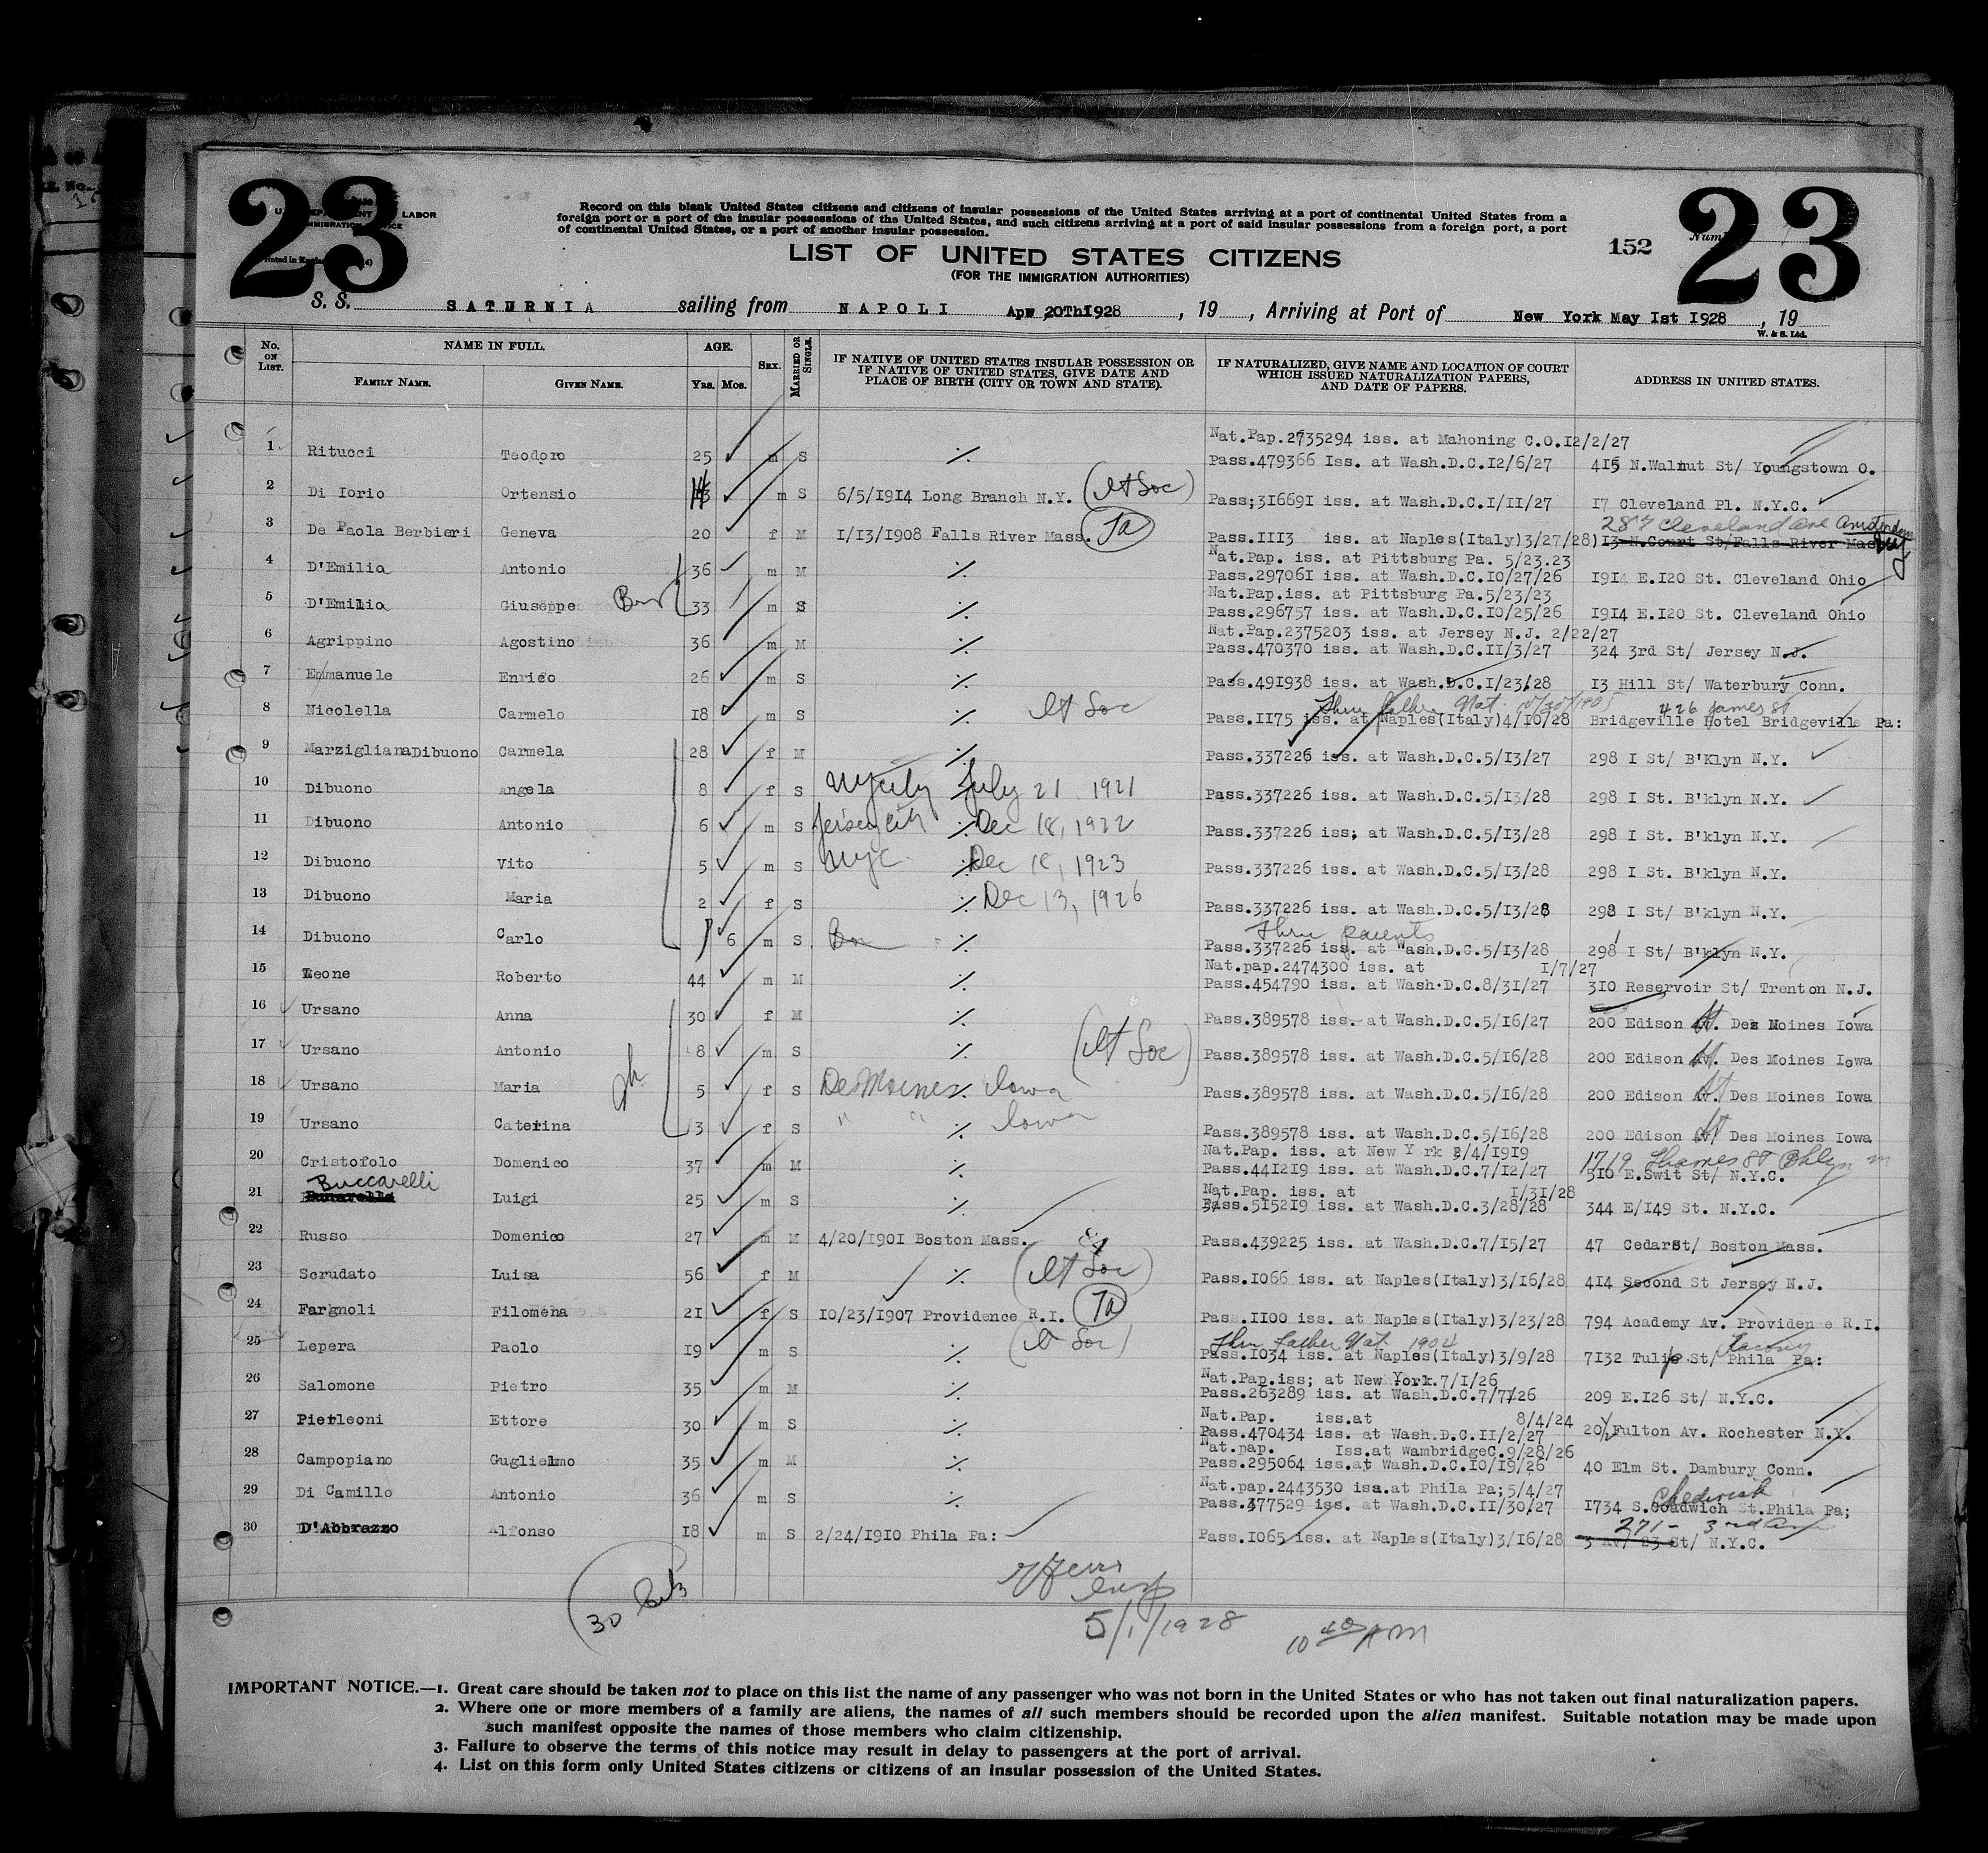 23
23
U. S. DEPARTMENT LABOR
IMMIGRATION SERVICE
Record on this blank United States citizens and citizens of insular possessions of the United States arriving at a port of continental United States from a
foreign port or a port of the insular possessions of the United States, and such citizens arriving at a port of said insular possessions from a foreign port, a port
of continental United States, or a port of another insular possession.
LIST OF UNITED STATES CITIZENS
(FOR THE IMMIGRATION AUTHORITIES)
152
S. S. SATURNIA sailing from NAPOLI Apr 20Th1928, 19 , Arriving at Port of New York May Ist I928, 19
W. & S. Ltd.
No. ON LIST. NAME IN FULL. FAMILY NAME. GIVEN NAME. AGE. Yrs. Mos. SEX. MARRIED OR SINGLE. IF NATIVE OF UNITED STATES INSULAR POSSESSION OR IF NATIVE OF UNITED STATES, GIVE DATE AND PLACE OF BIRTH (CITY OR TOWN AND STATE). IF NATURALIZED, GIVE NAME AND LOCATION OF COURT WHICH ISSUED NATURALIZATION PAPERS, AND DATE OF PAPERS. ADDRESS IN UNITED STATES.
Nat.Pap.2735294 iss. at Mahoning C.O.I2/2/27
1 Ritucci Teodoro 25 m S ·/. Pass.479366 Iss. at Wash.D.C.I2/6/27 415 N.Walnut St/ Youngstown O.
2 Di Iorio Ortensio 14 m S 6/5/I9I4 Long Branch N.Y. (It Soc) Pass;3I669I iss. at Wash.D.C.I/II/27 I7 Cleveland Pl. N.Y.C.
28 Cleveland Ave Amsterdam
3 De Paola Berbieri Geneva 20 f M I/I3/I908 Falls River Mass. Pass.III3 iss. at Naples(Italy)3/27/28) I3 N.Court St/Falls River Mass
Nat.Pap. iss. at Pittsburg Pa. 5/23.23
4 D'Emilio Antonio 36 m M ·/. Pass.29706I iss. at Wash.D.C.IO/27/26 I9I4 E.I20 St. Cleveland Ohio
Nat.Pap.iss. at Pittsburg Pa.5/23/23
5 D'Emilio Giuseppe 33 m S ·/. Pass.296757 iss. at Wash.D.C.IO/25/26 I9I4 E.I20 St. Cleveland Ohio
Nat.Pap.2375203 iss. at Jersey N.J. 2/22/27
6 Agrippino Agostino 36 m M ·/. Pass.470370 iss. at Wash.D.C.II/3/27 324 3rd St/ Jersey N.J.
7 Emmanuele Enrico 26 m S ·/. Pass.491938 iss. at Wash.D.C.I/23/28 I3 Hill St/ Waterbury Conn.
Thru father Nat. 426 James St
8 Nicolella Carmelo I8 m S ·/. It Soc Pass.II75 iss. at Naples(Italy)4/IO/28 Bridgeville Hotel Bridgeville Pa:
9 MarziglianaDibuono Carmela 28 f M ·/. Pass.337226 iss. at Wash.D.C.5/I3/27 298 I St/ B'Klyn N.Y.
10 Dibuono Angela 8 f S NYCity ·/. July 21 1921 Pass.337226 iss. at Wash.D.C.5/I3/28 298 I St. B'klyn N.Y.
11 Dibuono Antonio 6 m S Jersey City ·/. Dec 18, 1922 Pass.337226 iss; at Wash.D.C.5/I3/28 298 I St. B'klyn N.Y.
12 Dibuono Vito 5 m S NYC ·/. Dec 18, 1923 Pass.337226 iss. at Wash.D.C.5/I3/28 298 I St. B'klyn N.Y.
13 Dibuono Maria 2 f S ·/. Dec 13, 1926 Pass.337226 iss. at Wash.D.C.5/I3/28 298 I St/ B'klyn N.Y.
Thru parents
14 Dibuono Carlo 6 m S ·/. Pass.337226 iss. at Wash.D.C.5/I3/28 298 I St/ B'klyn N.Y.
Nat.pap.2474300 iss. at I/7/27
15 Leone Roberto 44 m M ·/. Pass.454790 iss. at Wash.D.C.8/3I/27 3IO Reservoir St/ Trenton N.J.
16 Ursano Anna 30 f M ·/. Pass.389578 iss. at Wash.D.C.5/I6/27 200 Edison St. Des Moines Iowa
17 Ursano Antonio 8 m S ·/. (It Soc) Pass.389578 iss. at Wash.D.C.5/I6/28 200 Edison St. Des Moines Iowa
18 Ursano Maria 5 f S Des Moines ·/. Iowa Pass.389578 iss. at Wash.D.C.5/I6/28 200 Edison St. Des Moines Iowa
19 Ursano Caterina 3 f S " " ·/. Iowa Pass.389578 iss. at Wash.D.C.5/I6/28 200 Edison St Des Moines Iowa
Nat.Pap. iss. at New York 2/4/I9I9 1719 Thames St Bklyn
20 Cristofolo Domenico 37 m M ·/. Pass.44I2I9 iss. at Wash.D.C.7/I2/27 5I6 E.Swit St/ N.Y.C.
Buccarelli Nat.Pap. iss. at I/3I/28
21 Luigi 25 m S ·/. Pass.5I52I9 iss. at Wash.D.C.3/28/28 344 E/I49 St. N.Y.C.
22 Russo Domenico 27 m M 4/20/I90I Boston Mass. Pass.439225 iss. at Wash.D.C.7/I5/27 47 Cedarst/ Boston Mass.
23 Scrudato Luisa 56 f M ·/. (It Soc) Pass.I066 iss. at Naples(Italy)3/I6/28 4I4 Second St Jersey N.J.
24 Fargnoli Filomena 2I f S IO/23/I907 Providence R.I. Pass.IIOO iss. at Naples(Italy)3/23/28 794 Academy Av. Providence R.I.
Thru Father Nat 1904 Tacony
25 Lepera Paolo I9 m S ·/. (It Soc) Pass.I034 iss. at Naples(Italy)3/9/28 7I32 Tulip St/ Phila Pa:
Nat.Pap.iss; at New York.7/I/26
26 Salomone Pietro 35 m M ·/. Pass.263289 iss. at Wash.D.C.7/7/26 209 E.I26 St/ N.Y.C.
Nat.Pap. iss.at 8/4/24
27 Pierleoni Ettore 30 m S ·/. Pass.470434 iss. at Wash.D.C.II/2/27 20½ Fulton Av. Rochester N.Y.
Nat.pap. Iss.at WambridgeC.9/28/26
28 Campopiano Guglielmo 35 m M ·/. Pass.295064 iss.at Wash.D.C.IO/I9/26 40 Elm St. Dambury Conn.
Nat.pap.2443530 iss.at Phila Pa;5/4/27 Chedwick
29 Di Camillo Antonio 36 m S ·/. Pass.377529 iss. at Wash.D.C.II/30/27 I734 S.Coadwich St.Phila Pa;
271 - 3rd Av
30 D'Abbrazzo Alfonso I8 m S 2/24/I9IO Phila Pa: Pass.I065 iss. at Naples(Italy)3/I6/28 3 Av/ 23 St/ N.Y.C.
30
5/1/1928 10 40 AM
IMPORTANT NOTICE.—1. Great care should be taken not to place on this list the name of any passenger who was not born in the United States or who has not taken out final naturalization papers.
2. Where one or more members of a family are aliens, the names of all such members should be recorded upon the alien manifest. Suitable notation may be made upon
such manifest opposite the names of those members who claim citizenship.
3. Failure to observe the terms of this notice may result in delay to passengers at the port of arrival.
4. List on this form only United States citizens or citizens of an insular possession of the United States.